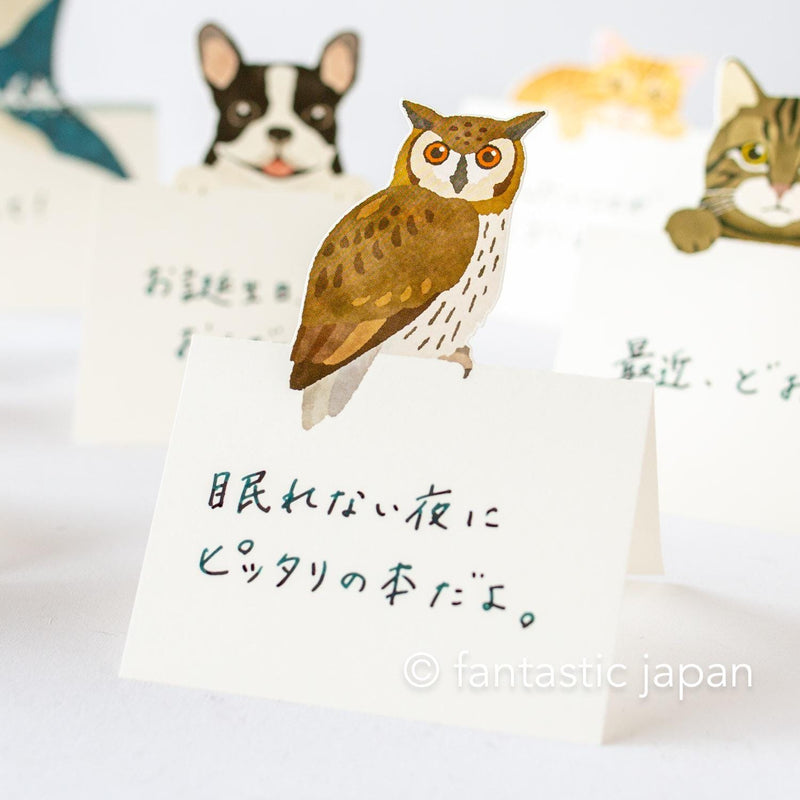 お誕生日
最近、どお
眠れない夜に
ピッタリの本だよ。
© fantastic japan